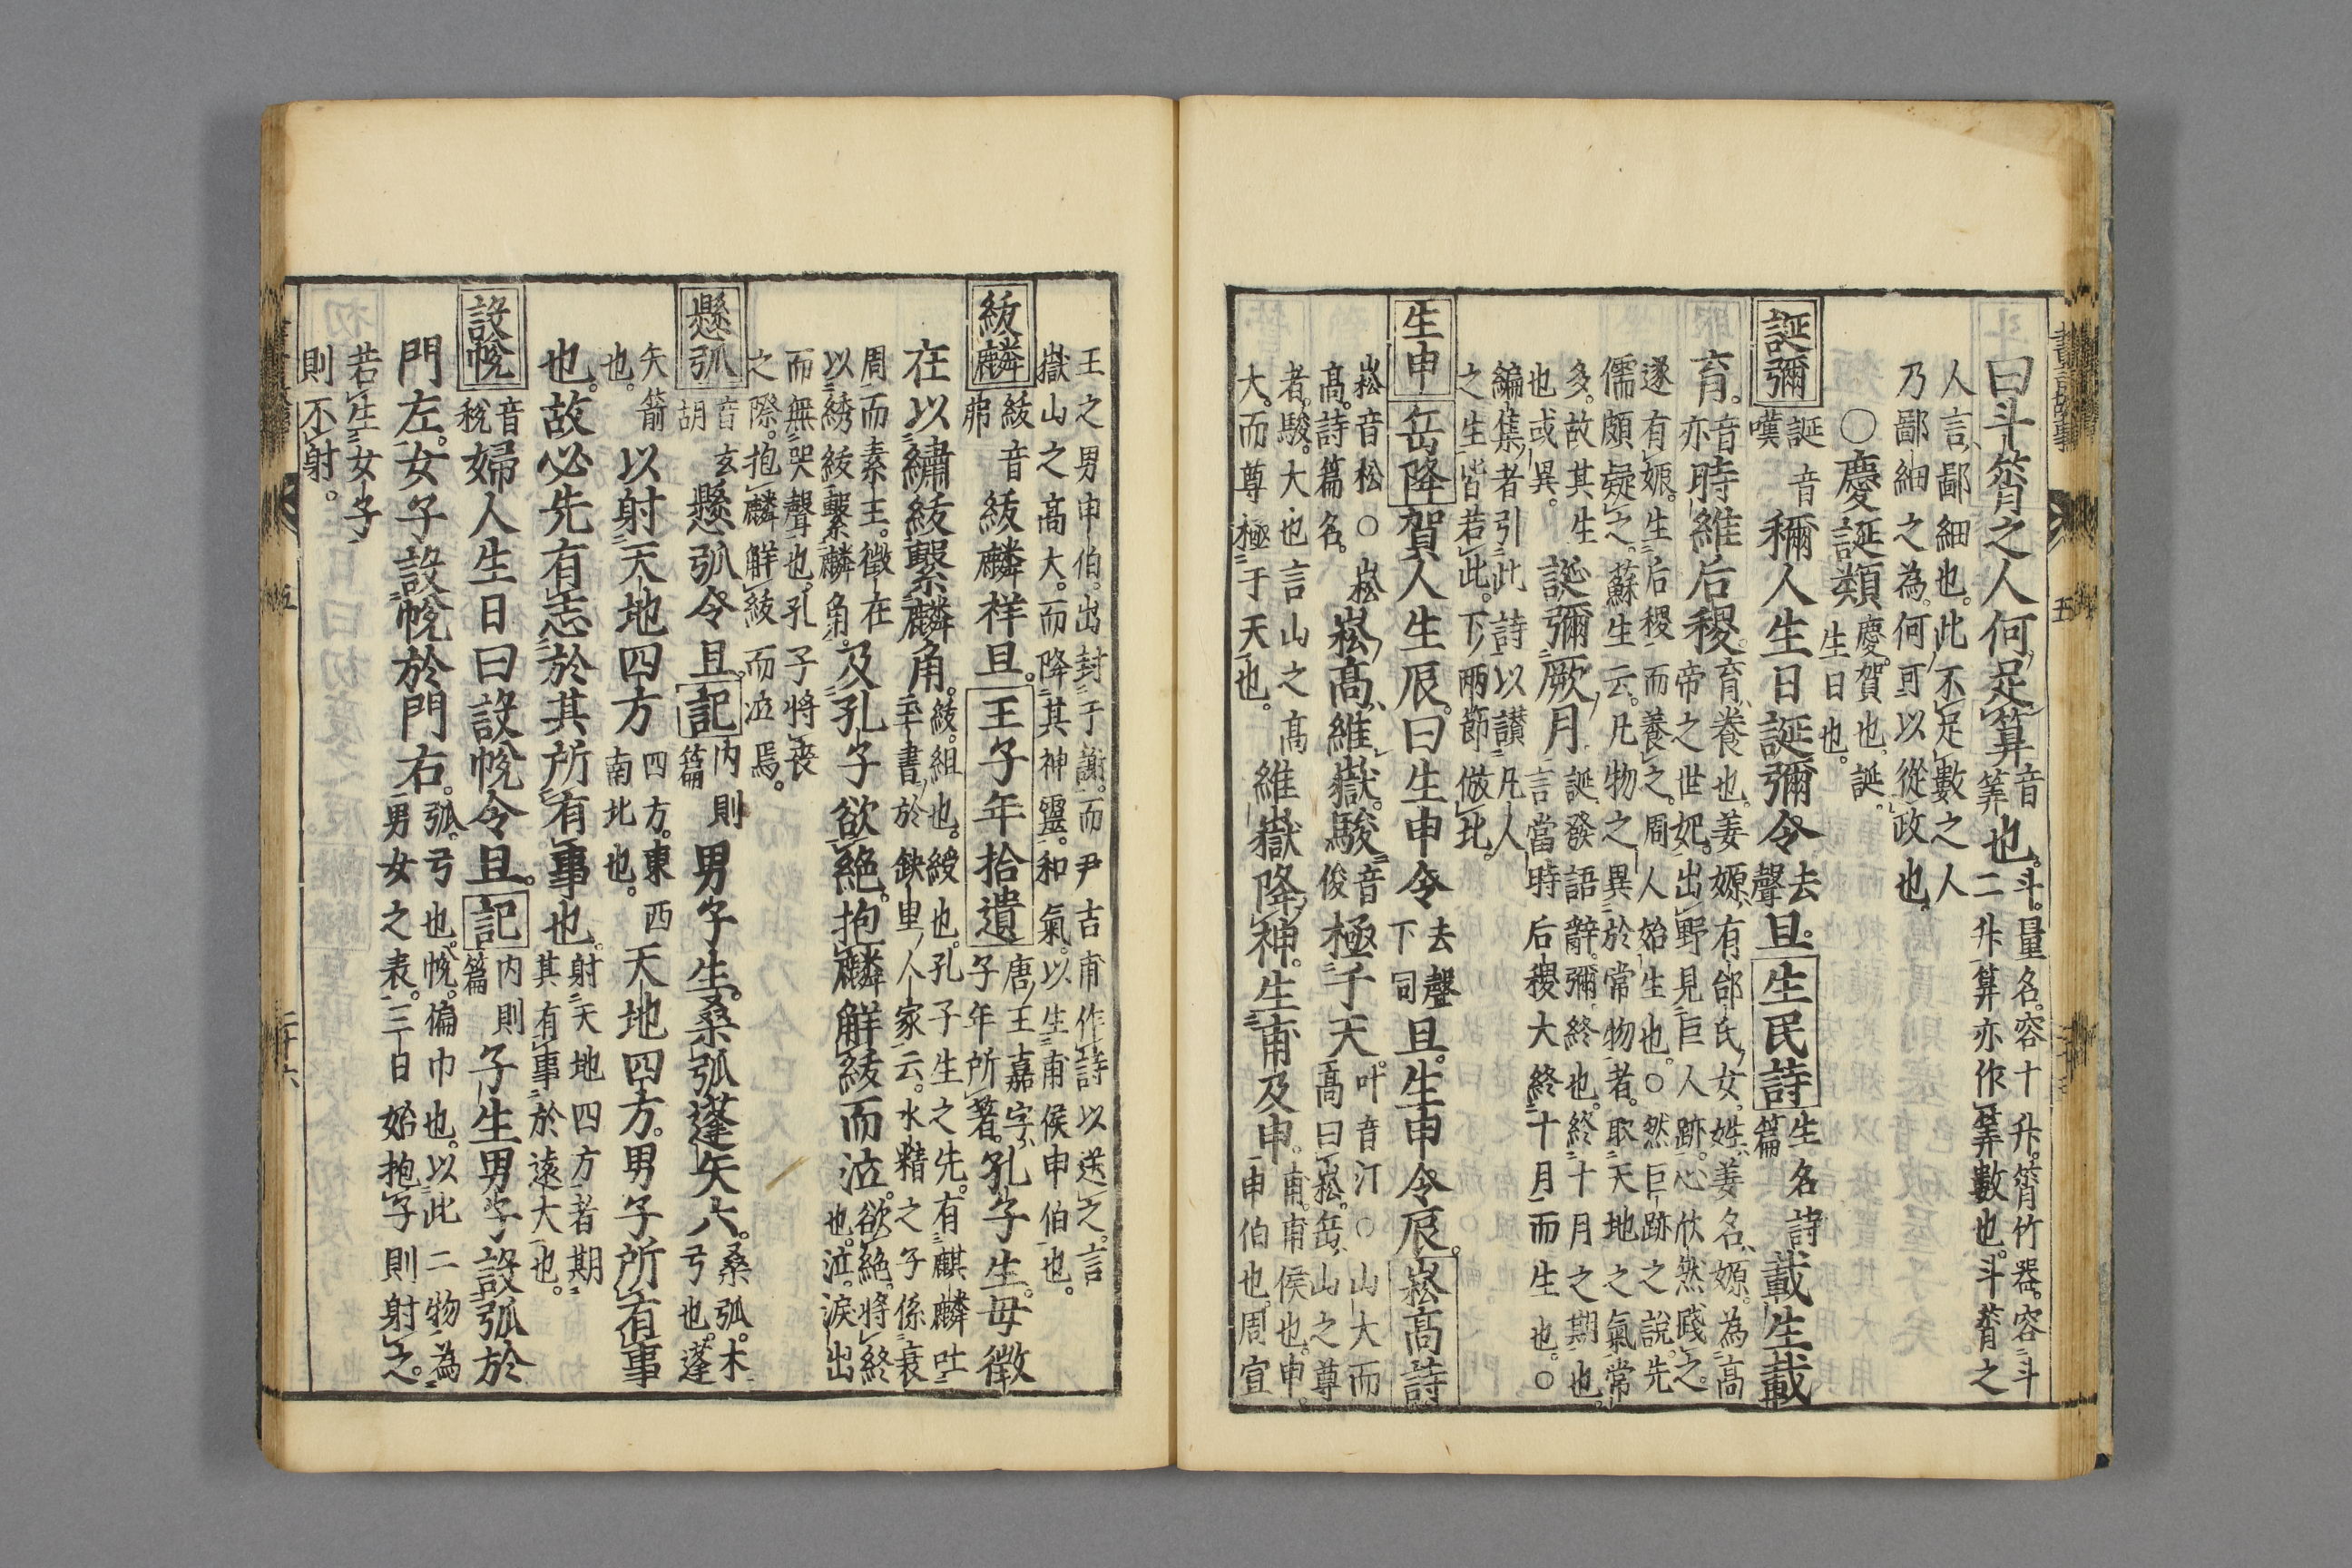 曰斗筲之人何足算音筭也斗量名容十升筲竹器容斗
二升算亦作筭數也斗筲之
人言鄙細也此不足數之人
乃鄙細之為何可以從政也
○慶誕類慶賀也誕
生日也
誕彌誕音嘆彌人生日誕彌令去聲旦生民詩生名詩篇載生載
育音亦時維后稷育養也姜嫄有邰氏女姓姜名嫄為高
帝之世妃出野見巨人跡心忻然踐之
遂有娠生后稷而養之周人始生也○然巨跡之說先
儒頗疑之蘇生云凡物之異於常物者取天地之氣常
多故其生
也或異誕彌厥月誕發語辭彌終也終十月之期也
言當時后稷大終十月而生也○
編集者引此詩以讃凡人
之生皆若此下兩節倣此
生申岳降賀人生辰曰生申令去聲下同旦生申令辰崧高詩
崧音松○崧
高詩篇名崧高維嶽駿音俊極于天叶音汀○山大而
高曰崧岳山之尊
者駿大也言山之高
大而尊極于天也維嶽降神生甫及申甫甫侯也申
申伯也周宣
王之男申伯出封于謝而尹吉甫作詩以送之言
嶽山之高大而降其神靈和氣以生甫侯申伯也
紱麟紱音弗紱麟祥旦王子年拾遺唐王嘉字
子年所著孔子生母徵
在以繡紱繫麟角紱組也綬也孔子生之先有麒麟吐
玉書於鈌里人家云水精之子係衰
周而素王徵在
以綉紱繫麟角及孔子欲絕抱麟解紱而泣欲絕將終
也泣淚出
而無哭聲也孔子將喪
之際抱麟解紱而泣焉
懸弧音胡玄懸弧令旦記內則篇男子生桑弧蓬矢六桑弧木
弓也蓬
矢箭
也以射天地四方四方東西
南北也天地四方男子所有事
也故必先有志於其所有事也射天地四方者期
其有事於遠大也
設帨音稅婦人生日曰設帨令旦記內則篇子生男子設弧於
門左女子設帨於門右弧弓也帨偏巾也以此二物為
男女之表三日始抱子則射之
若生女子
則不射